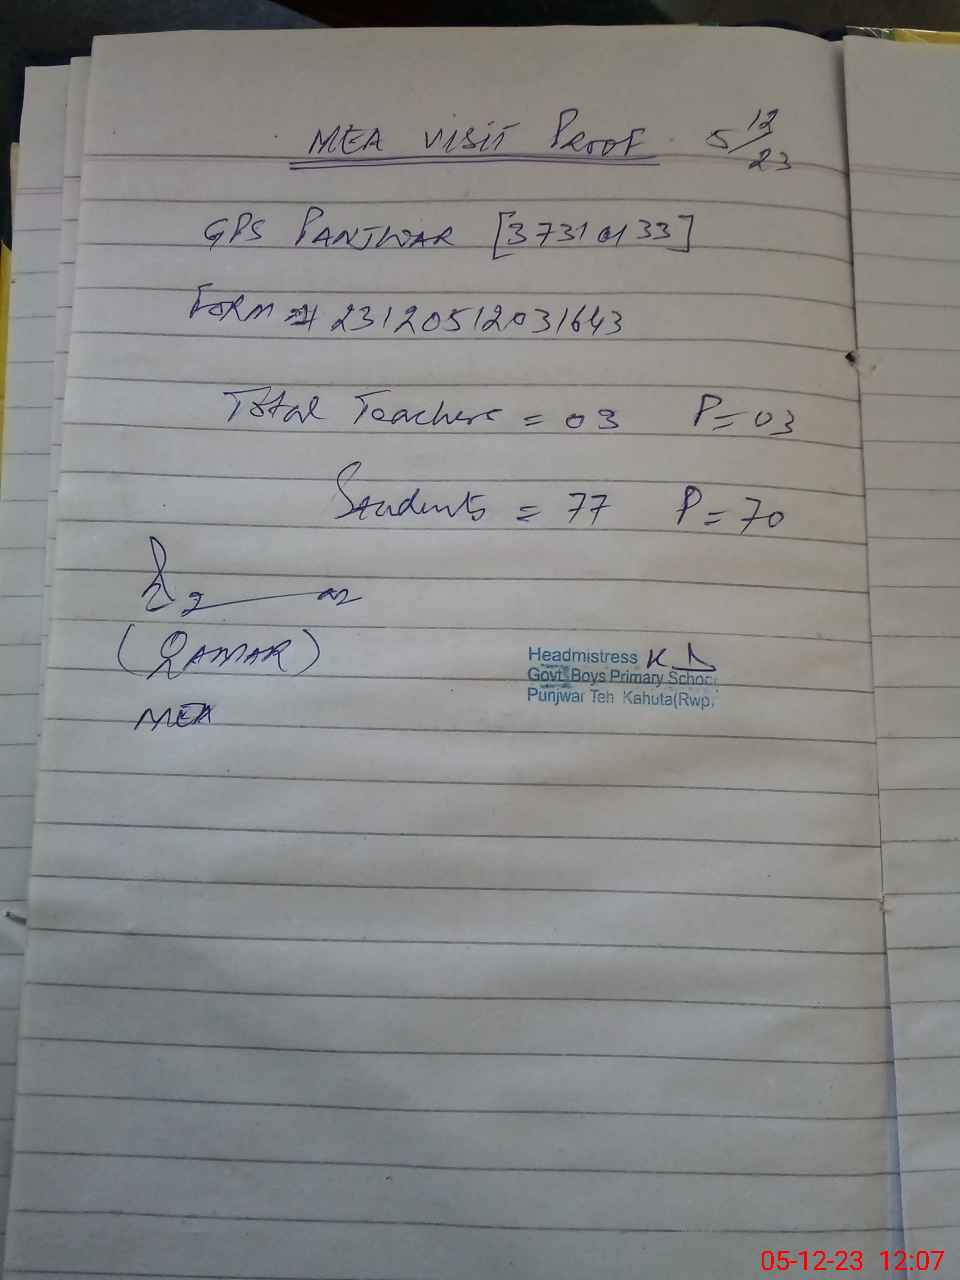 MEA VISIT PROOF 5/12/23
GPS PANJWAR [37310133]
FORM # 23120512031643
Total Teachers = 03 P=03
Students = 77 P=70
(QAMAR)
MEA
Headmistress
Govt. Boys Primary School
Punjwar Teh Kahuta(Rwp)
05-12-23 12:07